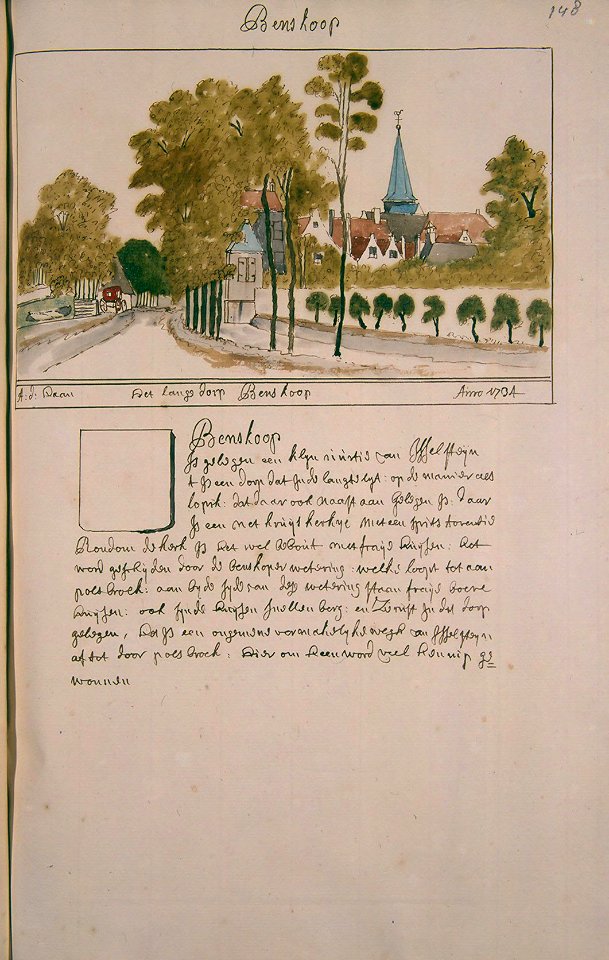 148
Benskoop
A: d: Haan Het lange dorp Benskoop Anno 1734
Benskoop
Js gelegen een klyn uurtie van JJselsteyn
t Js een dorp dat Jnde langte lyt: op de manier als
lopik: dat daar ook naast aan gelegen Js: daar
Js een net kruys kerkye met een spits torentie
Rondom de kerk Js het wel bebout met fraye huysen: het
word gescheyden door de benskoper wetering: welke loopt tot aan
polsbroek: aan byde syde van dese wetering staan fraye boere
huysen: ook synde huysen snellenberg: en Jn dit dorp
gelegen, dit Js een ongemene vermakelyke wegh van JJselsteyn
af tot door polsbroek: hier om heen word veel hennip ge=
wonnen